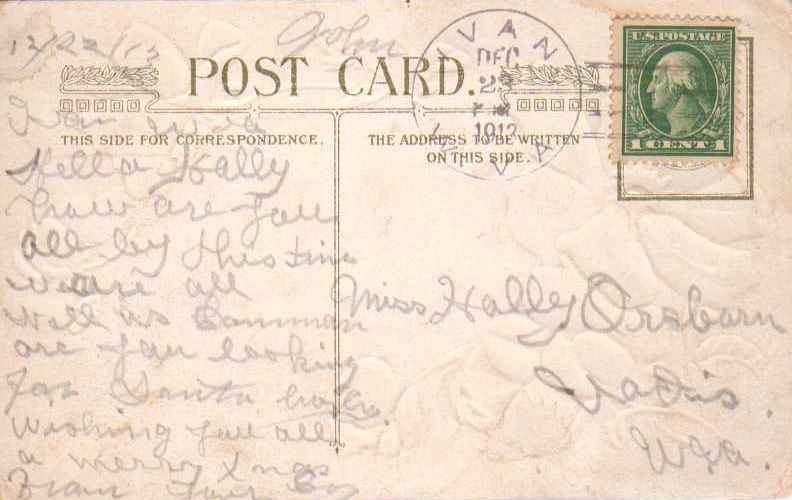 12/22/12
John
POST CARD.
THIS SIDE FOR CORRESPONDENCE.
THE ADDRESS TO BE WRITTEN
ON THIS SIDE.
IVAN
DEC
1912
W. VA.
U.S. POSTAGE
1 CENT 1
Ivan
Hello Hally
how are you
all by this time
we are all
well as common
are you looking
for Santa
wishing you all
a merry Xmas
from your
Miss Hally Orsburn
Vadis.
W Va.